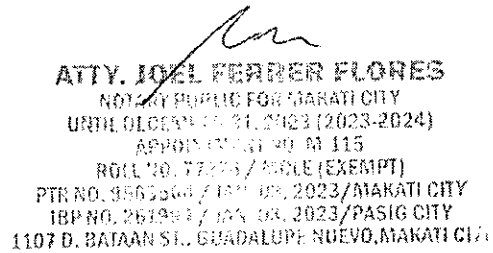 ATTY. JOEL FERRER FLORES
NOTARY PUBLIC FOR MAKATI CITY
UNTIL DECEMBER 31, 2023 (2023-2024)
APPOINTMENT NO. M 115
ROLL NO. / MCLE (EXEMPT)
PTR NO. / JAN 03, 2023/MAKATI CITY
IBP NO. / JAN 03, 2023/PASIG CITY
1107 D. BATAAN ST., GUADALUPE NUEVO, MAKATI CITY